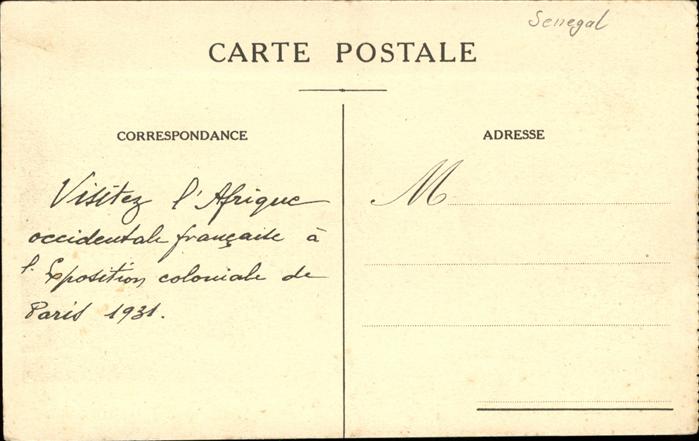 Senegal
CARTE POSTALE
CORRESPONDANCE
ADRESSE
Visitez l'Afrique
occidentale française à
l'Exposition coloniale de
Paris 1931.
M